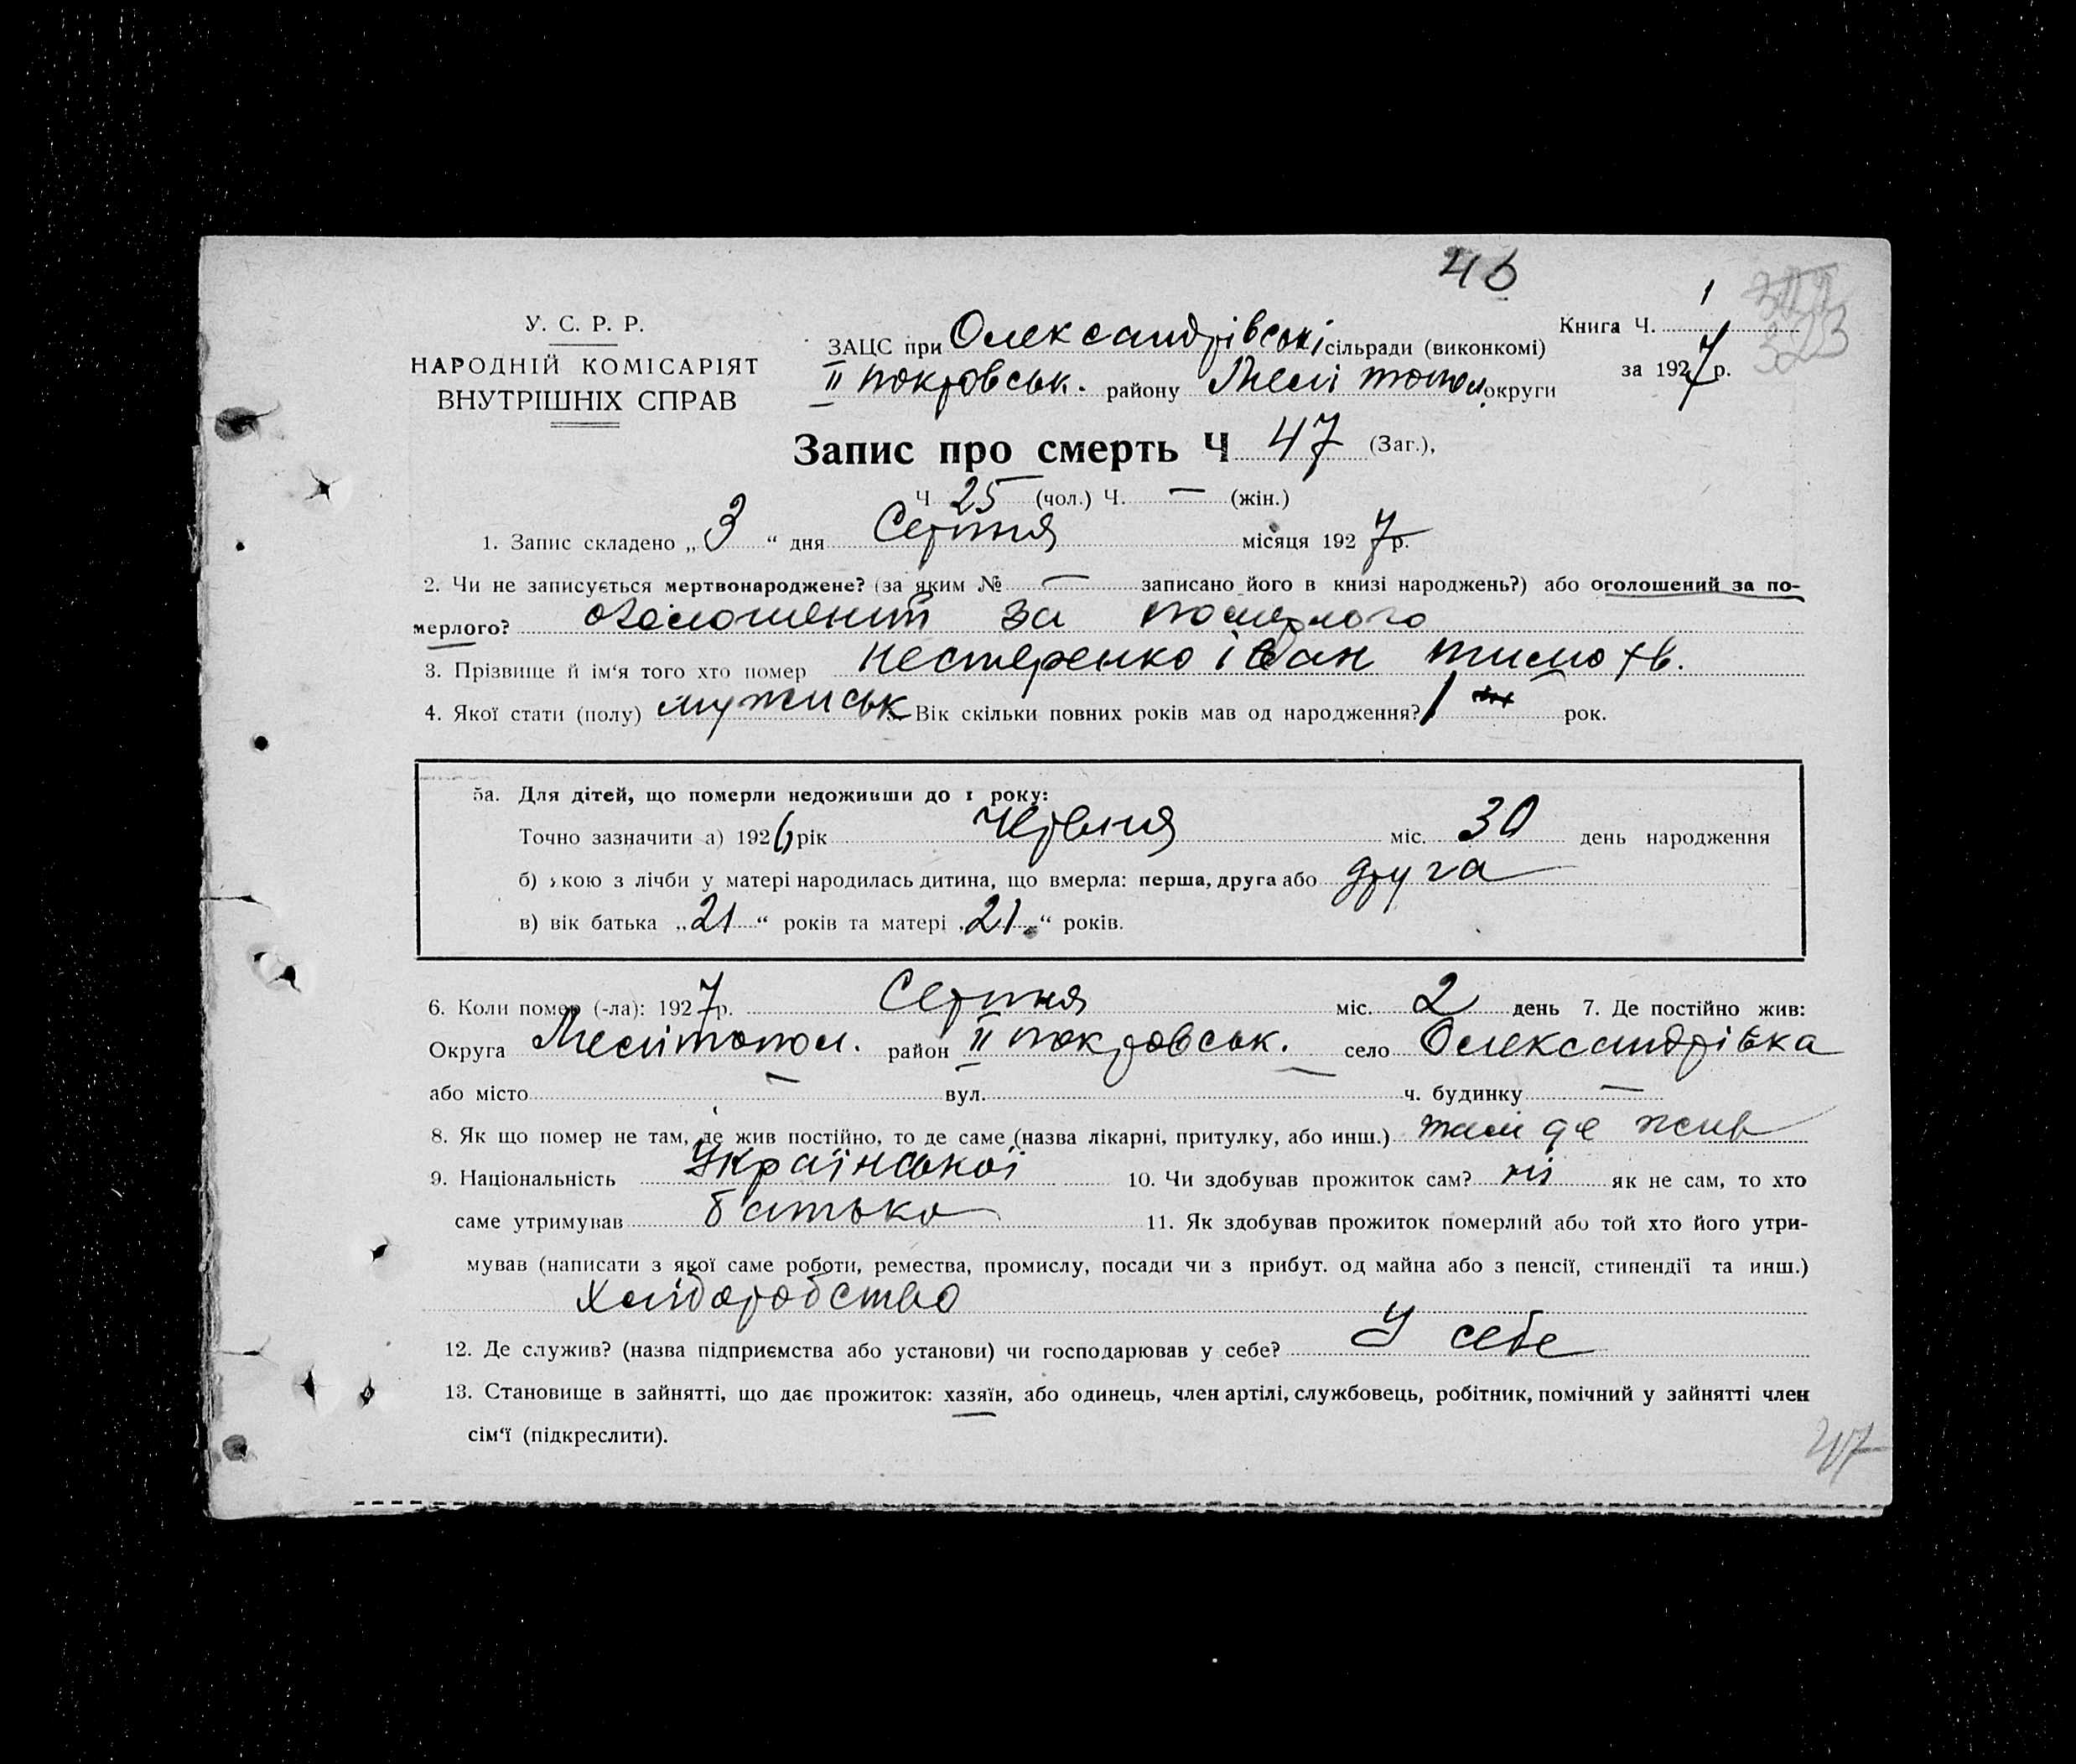 46
У. С. Р. Р.
НАРОДНІЙ КОМІСАРІЯТ
ВНУТРІШНІХ СПРАВ
ЗАЦС при Олександрівські сільради (виконкомі)
II покровськ. району Мелітопол. округи
Книга Ч. 1
за 1927 р.
323
Запис про смерть Ч 47 (Заг.),
Ч 25 (чол.) Ч. — (жін.)
1. Запис складено „3“ дня Серпня місяця 1927 р.
2. Чи не записується мертвонароджене? (за яким № — записано його в книзі народжень?) або оголошений за по-
мерлого? оголошений за померлого
3. Прізвище й ім'я того хто помер Нестеренко іван тимофв.
4. Якої стати (полу) мужиськ Вік скільки повних років мав од народження? 1 рок.
5а. Для дітей, що померли недоживши до 1 року:
Точно зазначити а) 1926 рік Червня міс. 30 день народження
б) якою з лічби у матері народилась дитина, що вмерла: перша, друга або друга
в) вік батька „21“ років та матері „21“ років.
6. Коли помер (-ла): 1927 р. Серпня міс. 2 день 7. Де постійно жив:
Округа Мелітопол. район II покровськ. село Олександрівка
або місто — вул. — ч. будинку —
8. Як що помер не там, де жив постійно, то де саме (назва лікарні, притулку, або инш.) там де жив
9. Національність Української 10. Чи здобував прожиток сам? ні як не сам, то хто
саме утримував батько 11. Як здобував прожиток померлий або той хто його утри-
мував (написати з якої саме роботи, ремества, промислу, посади чи з прибут. од майна або з пенсії, стипендії та инш.)
Хліборобство
12. Де служив? (назва підприємства або установи) чи господарював у себе? У себе
13. Становище в зайнятті, що дає прожиток: хазяїн, або одинець, член артілі, службовець, робітник, помічний у зайнятті член
сім'ї (підкреслити).
47